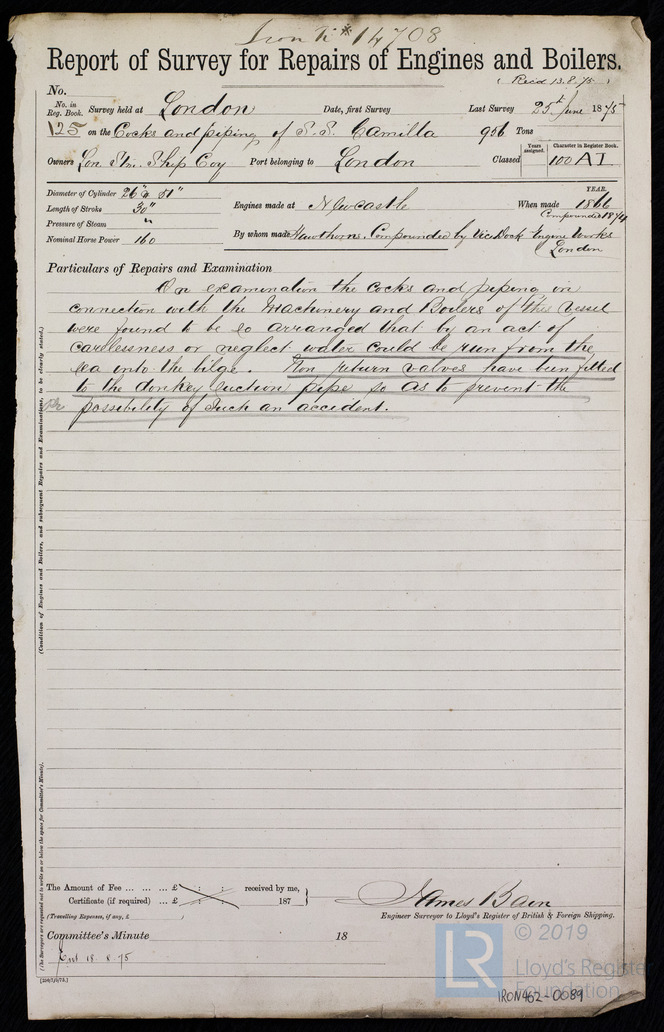 Iron Tr # 14708
Report of Survey for Repairs of Engines and Boilers.
(Recd 13.8.75)
No.
No. in Reg. Book. Survey held at London Date, first Survey Last Survey 25th June 1875
125 on the Cocks and piping of S.S. Camilla 956 Tons
Owners Lon Stm. Ship Coy Port belonging to London Classed Years assigned. Character in Register Book. 100 A I.
Diameter of Cylinder 26" & 51"
Length of Stroke 30"
Pressure of Steam "
Nominal Horse Power 160
Engines made at Newcastle When made YEAR. 1866
Compounded 1874
By whom made Hawthorns. Compounded by Vic. Dock Engine Works
London
Particulars of Repairs and Examination
On examination the Cocks and piping in
connection with the Machinery and Boilers of this Vessel
were found to be so arranged that by an act of
carelessness or neglect water could be run from the
sea into the bilge. Non return valves have been fitted
to the donkey suction pipe so as to prevent the
possibility of such an accident.
(Condition of Engines and Boilers, and subsequent Repairs and Examinations, to be clearly stated.)
(The Surveyors are requested not to write on or below the space for Committee's Minute).
The Amount of Fee ... ... ... £ : : received by me,
Certificate (if required) ... £ : : 187
(Travelling Expenses, if any, £ )
James Bain
Engineer Surveyor to Lloyd's Register of British & Foreign Shipping.
Committee's Minute 18
18.8.75
© 2019
LR
Lloyd's Register
Foundation
IRON462-0089